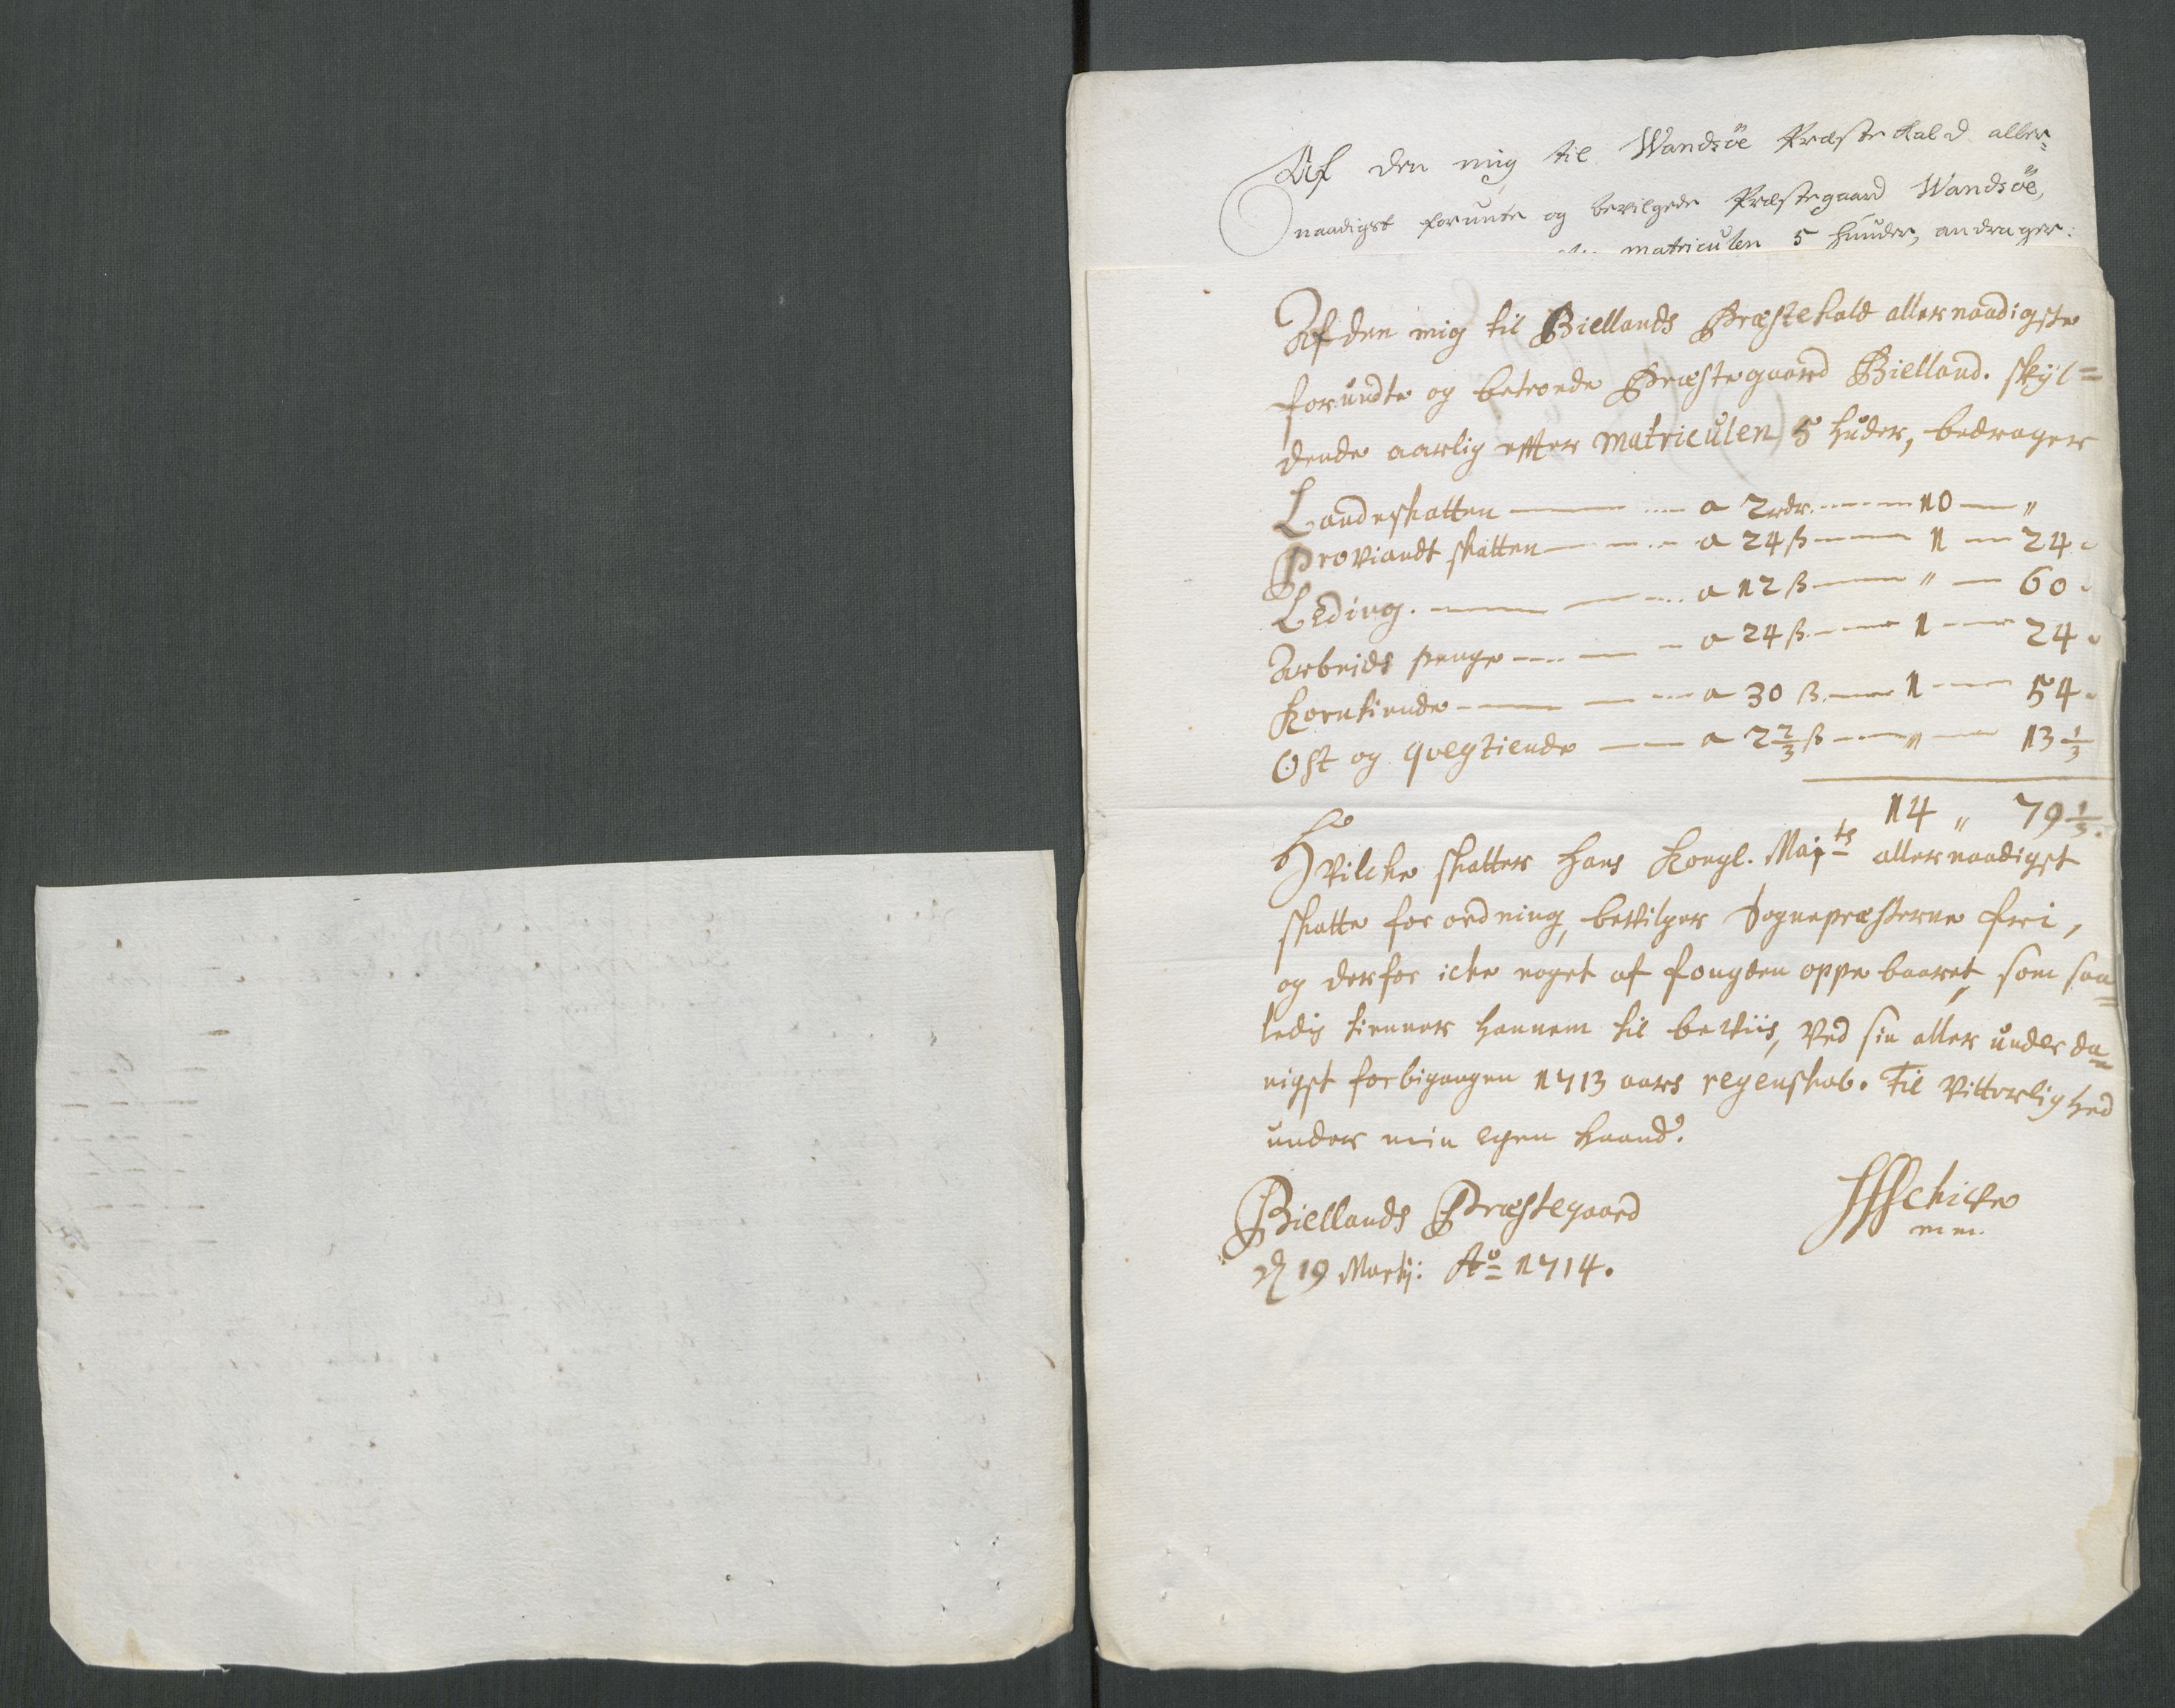 Af den mig til Wandsöe Præste Kald aller=
naadigst forunte og bevilgede Præstegaard Wandsöe,
matriculen 5 huuder, andrager:
Af den mig til Biellands Præstekald allernaadigste
forundte og betroede Præstegaard Bielland. skyl=
dende aarlig effter Matriculen 5 huder, bedrager
Landskatten a 2 rdr. 10 — "
Proviandt skatten a 24 ß 1 — 24
Leding. a 12 ß " — 60
Arbeids penge a 24 ß 1 — 24
Korntiende a 30 ß 1 — 54
Ost og qvegtiende a 2 2/3 ß " — 13 1/3
14 " 79 1/3.
Hvilche skatter Hans Kongl. Majts allernaadigst
skatte forordning, bevilger Sognepræsterne frei,
og derfor icke noget af fougden oppebaaret, som saa=
ledis tienner hannem til beviis, Ved sin aller underda=
nigst forbigangen 1713 aars regenskab. Til Vitterlighed
under min egen haand.
Biellands Præstegaard
d 19 Martij: Ao 1714.
mm.